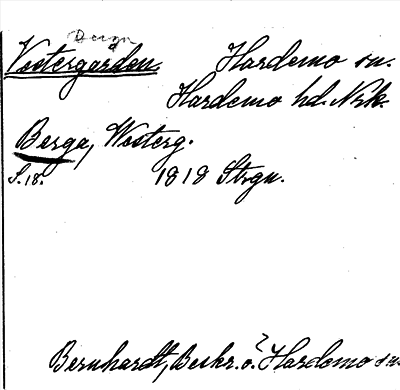 Berga
Vestergården Hardemo sn.
Hardemo hd. Nrk.
Berga, Westerg.
S. 18. 1818 Strgn.
Bernhardt, Beskr. o. ? Hardemo sn.